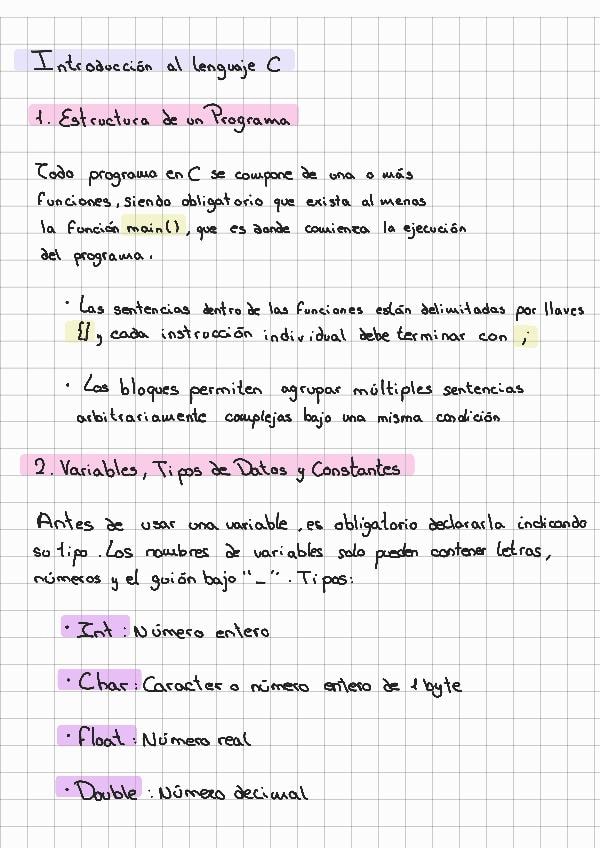 Introducción al lenguaje C
1. Estructura de un Programa
Todo programa en C se compone de una o más
funciones, siendo obligatorio que exista al menos
la función main(), que es donde comienza la ejecución
del programa.
· Las sentencias dentro de las funciones están delimitadas por llaves
{} y cada instrucción individual debe terminar con ;
· Los bloques permiten agrupar múltiples sentencias
arbitrariamente complejas bajo una misma condición
2. Variables, Tipos de Datos y Constantes
Antes de usar una variable, es obligatorio declararla indicando
su tipo. Los nombres de variables solo pueden contener letras,
números y el guión bajo "_". Tipos:
· Int: Número entero
· Char: Caracter o número entero de 1 byte
· Float: Número real
· Double: Número decimal